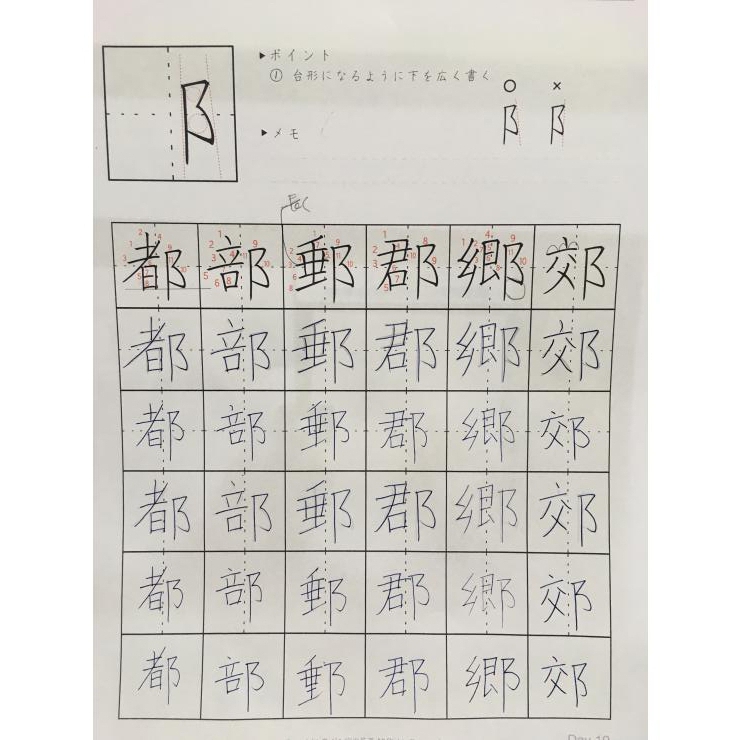 阝
▶ポイント
① 台形になるように下を広く書く
○ ×
阝 阝
▶メモ
長く
都 部 郵 郡 郷 郊
都 部 郵 郡 郷 郊
都 部 郵 郡 郷 郊
都 部 郵 郡 郷 郊
都 部 郵 郡 郷 郊
都 部 郵 郡 郷 郊